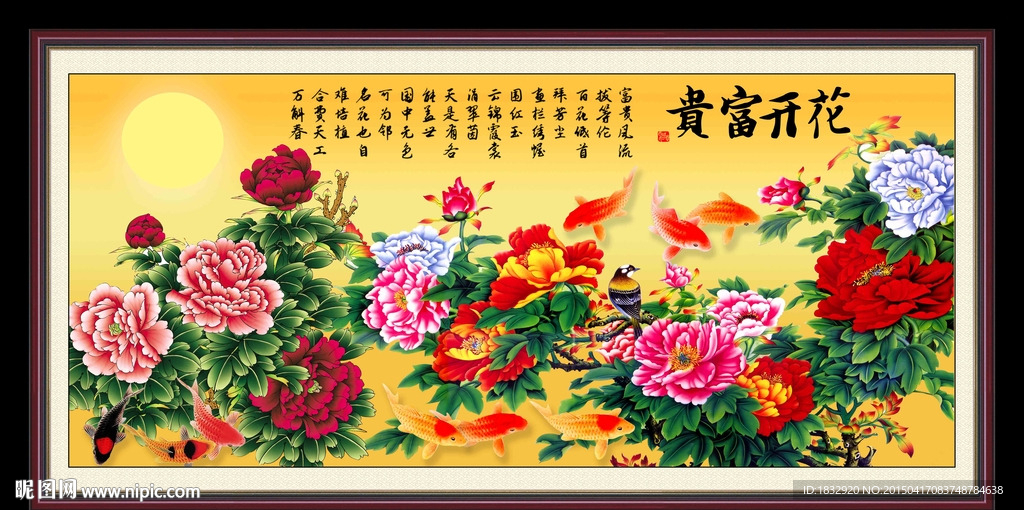 花开富貴
富贵风流
拔等伦
百花低首
拜芳尘
画栏绣幄
围红玉
云锦霞裳
涓翠茵
天是有各
能盖世
国中无色
可为邻
名花也自
难培植
合费天工
万斛春
昵图网 www.nipic.com
ID:1832920 NO:20150417083748784638